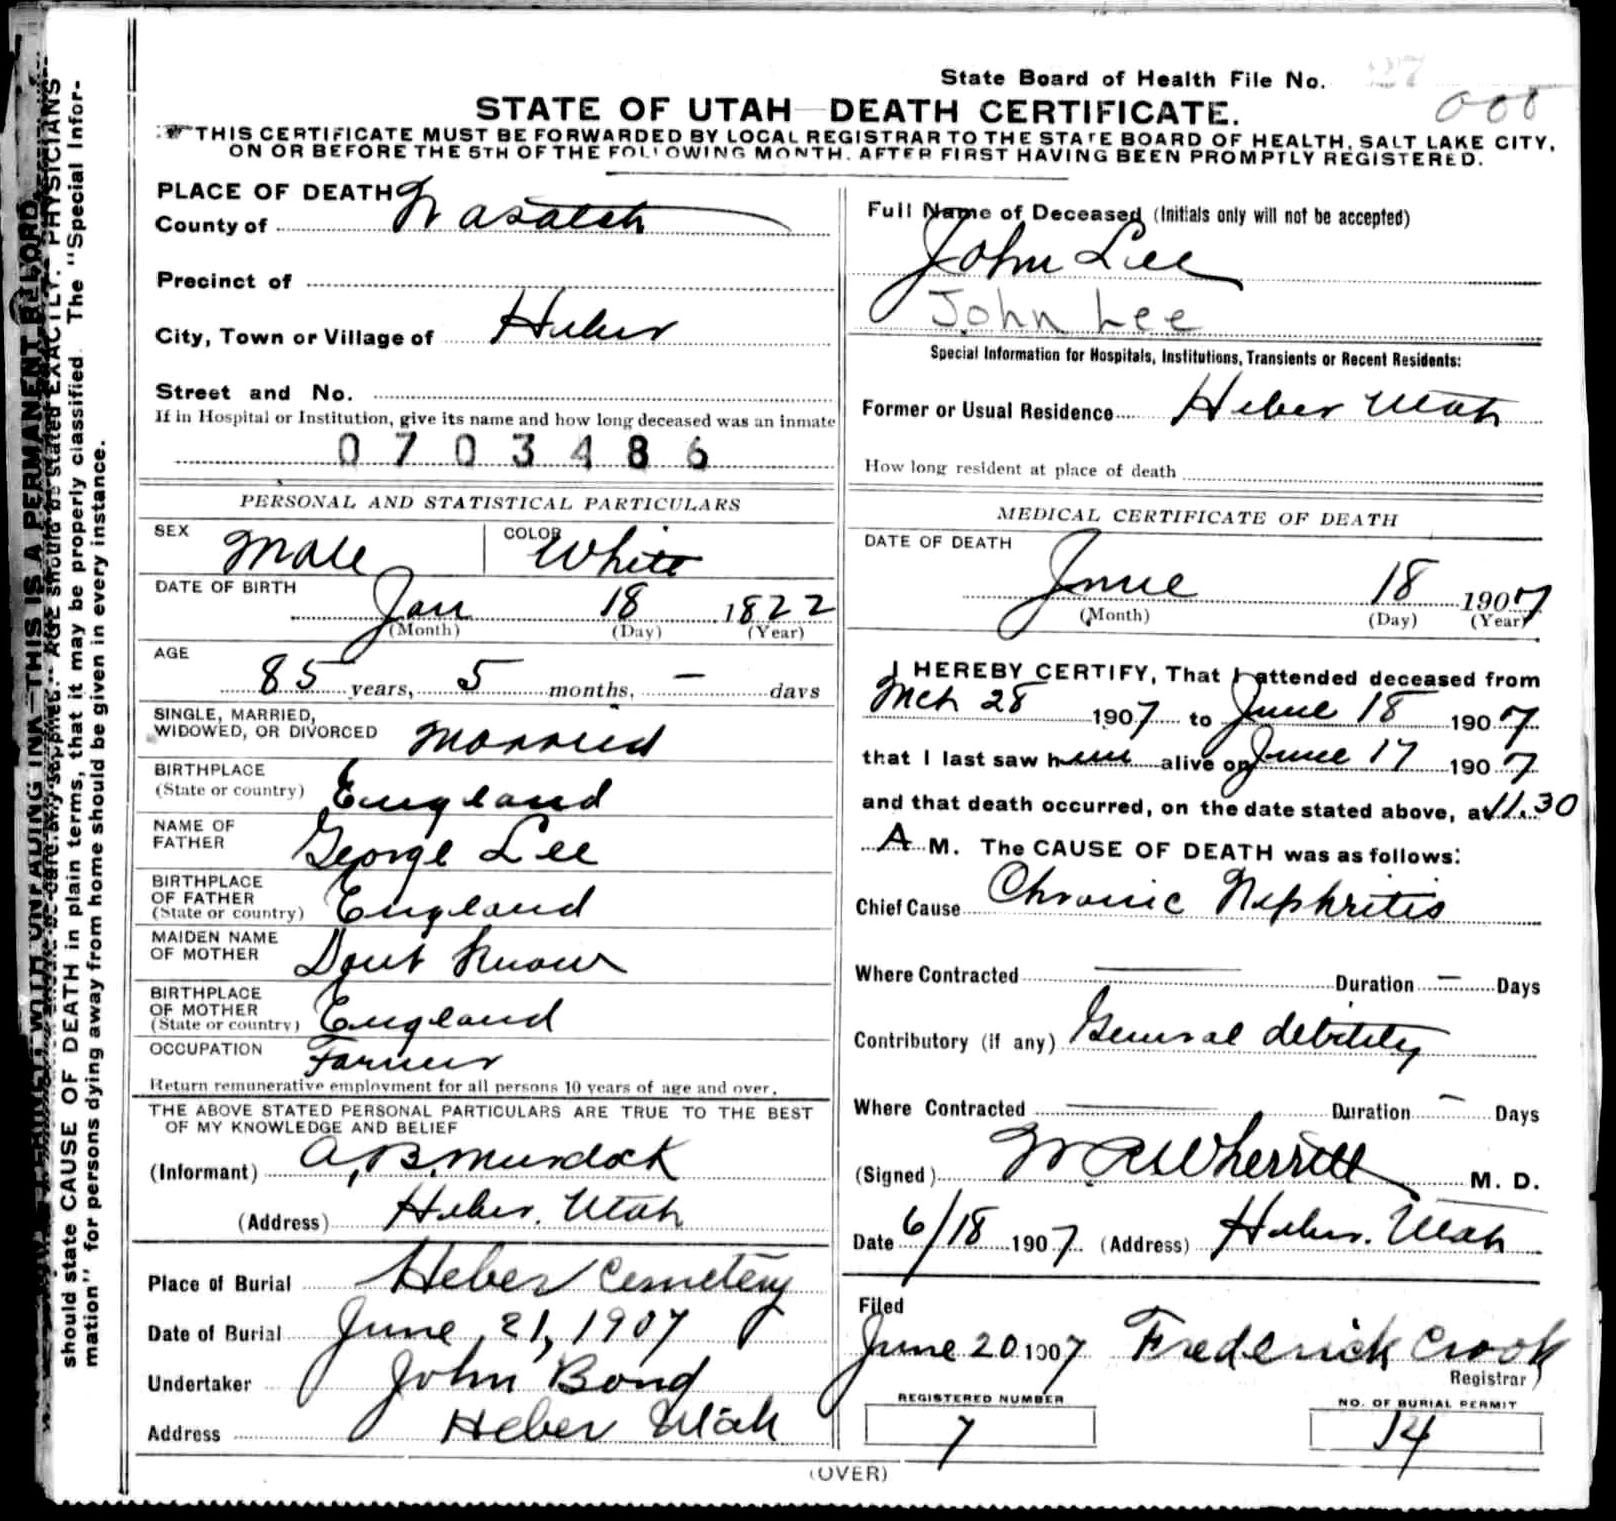 State Board of Health File No. 27
008
STATE OF UTAH—DEATH CERTIFICATE.
THIS CERTIFICATE MUST BE FORWARDED BY LOCAL REGISTRAR TO THE STATE BOARD OF HEALTH, SALT LAKE CITY,
ON OR BEFORE THE 5TH OF THE FOLLOWING MONTH, AFTER FIRST HAVING BEEN PROMPTLY REGISTERED.
PLACE OF DEATH
County of Wasatch
Precinct of
City, Town or Village of Heber
Street and No.
If in Hospital or Institution, give its name and how long deceased was an inmate
0703486
PERSONAL AND STATISTICAL PARTICULARS
SEX Male COLOR White
DATE OF BIRTH
Jan 18 1822
(Month) (Day) (Year)
AGE
85 years, 5 months, — days
SINGLE, MARRIED,
WIDOWED, OR DIVORCED Married
BIRTHPLACE
(State or country) England
NAME OF
FATHER George Lee
BIRTHPLACE
OF FATHER
(State or country) England
MAIDEN NAME
OF MOTHER Dont Know
BIRTHPLACE
OF MOTHER
(State or country) England
OCCUPATION Farmer
Return remunerative employment for all persons 10 years of age and over.
THE ABOVE STATED PERSONAL PARTICULARS ARE TRUE TO THE BEST
OF MY KNOWLEDGE AND BELIEF
(Informant) A. B. Murdock
(Address) Heber. Utah
Place of Burial Heber Cemetery
Date of Burial June, 21, 1907
Undertaker John Bond
Address Heber Utah
Full Name of Deceased (Initials only will not be accepted)
John Lee
John Lee
Special Information for Hospitals, Institutions, Transients or Recent Residents:
Former or Usual Residence Heber Utah
How long resident at place of death
MEDICAL CERTIFICATE OF DEATH
DATE OF DEATH
June 18 1907
(Month) (Day) (Year)
I HEREBY CERTIFY, That I attended deceased from
Mch 28 1907 to June 18 1907
that I last saw him alive on June 17 1907
and that death occurred, on the date stated above, at 11.30
A M. The CAUSE OF DEATH was as follows:
Chief Cause Chronic Nephritis
Where Contracted — Duration — Days
Contributory (if any) General debility
Where Contracted — Duration — Days
(Signed) W R Wherritt M. D.
Date 6/18 1907 (Address) Heber. Utah
Filed
June 20 1907 Frederick Crook
Registrar
REGISTERED NUMBER
7
NO. OF BURIAL PERMIT
14
(OVER)
THIS IS A PERMANENT RECORD.
AGE should be stated EXACTLY. PHYSICIANS
should state CAUSE OF DEATH in plain terms, that it may be properly classified. The "Special Infor-
mation" for persons dying away from home should be given in every instance.